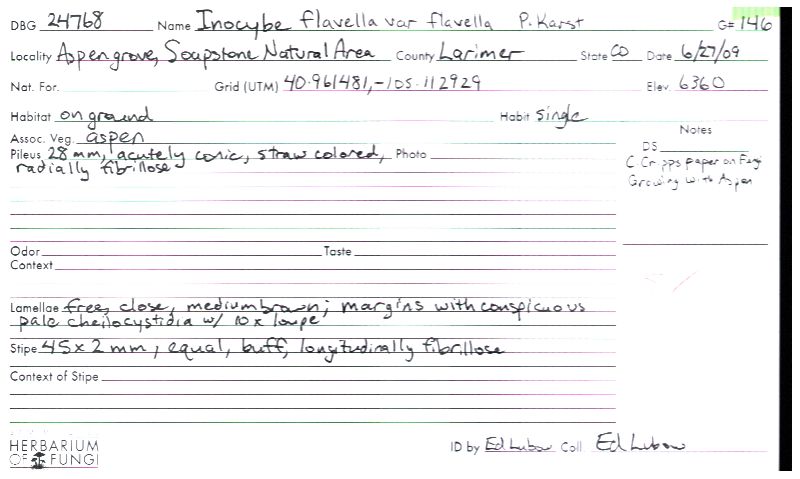 DBG 24768 Name Inocybe flavella var flavella P. Karst G# 146
Locality Aspen grove, Soapstone Natural Area County Larimer State CO Date 6/27/09
Nat. For. Grid (UTM) 40.961481, -105.112929 Elev 6360
Habitat on ground Habit single
Assoc. Veg. aspen
Notes
Pileus 28 mm, acutely conic, straw colored, Photo
radially fibrillose
DS
C. Cripps paper on Fugi
Growing with Aspen
Odor Taste
Context
Lamellae free, close, medium brown; margins with conspicuous
pale cheilocystidia w/ 10x loupe
Stipe 45 x 2 mm, equal, buff, longitudinally fibrillose
Context of Stipe
HERBARIUM
OF FUNGI
ID by Ed Lubow Coll Ed Lubow